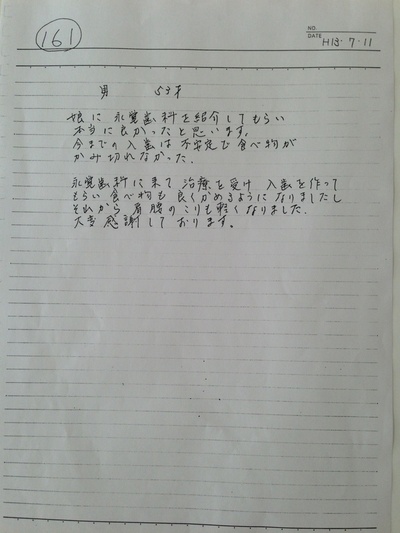 161
NO.
DATE H13・7・11
男 53才
娘に 永覚歯科を紹介してもらい
本当に良かったと思います。
今までの入歯は不安定で食べ物が
かみ切れなかった.
永覚歯科に来て 治療を受け 入歯を作って
もらい食べ物も良くかめるようになりましたし
それから肩腰のこりも軽くなりました.
大変感謝しております。